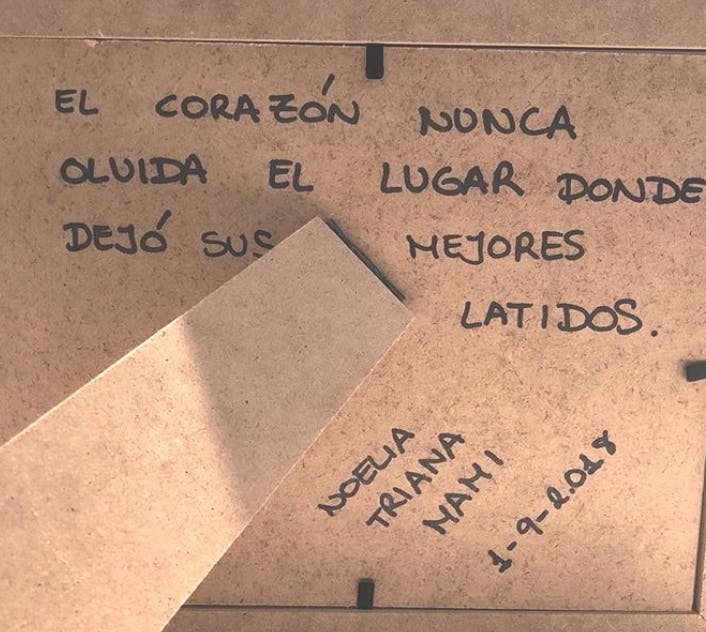 EL CORAZÓN NUNCA
OLVIDA EL LUGAR DONDE
DEJÓ SUS MEJORES
LATIDOS.
NOELIA
TRIANA
MAMI
1-9-2.018